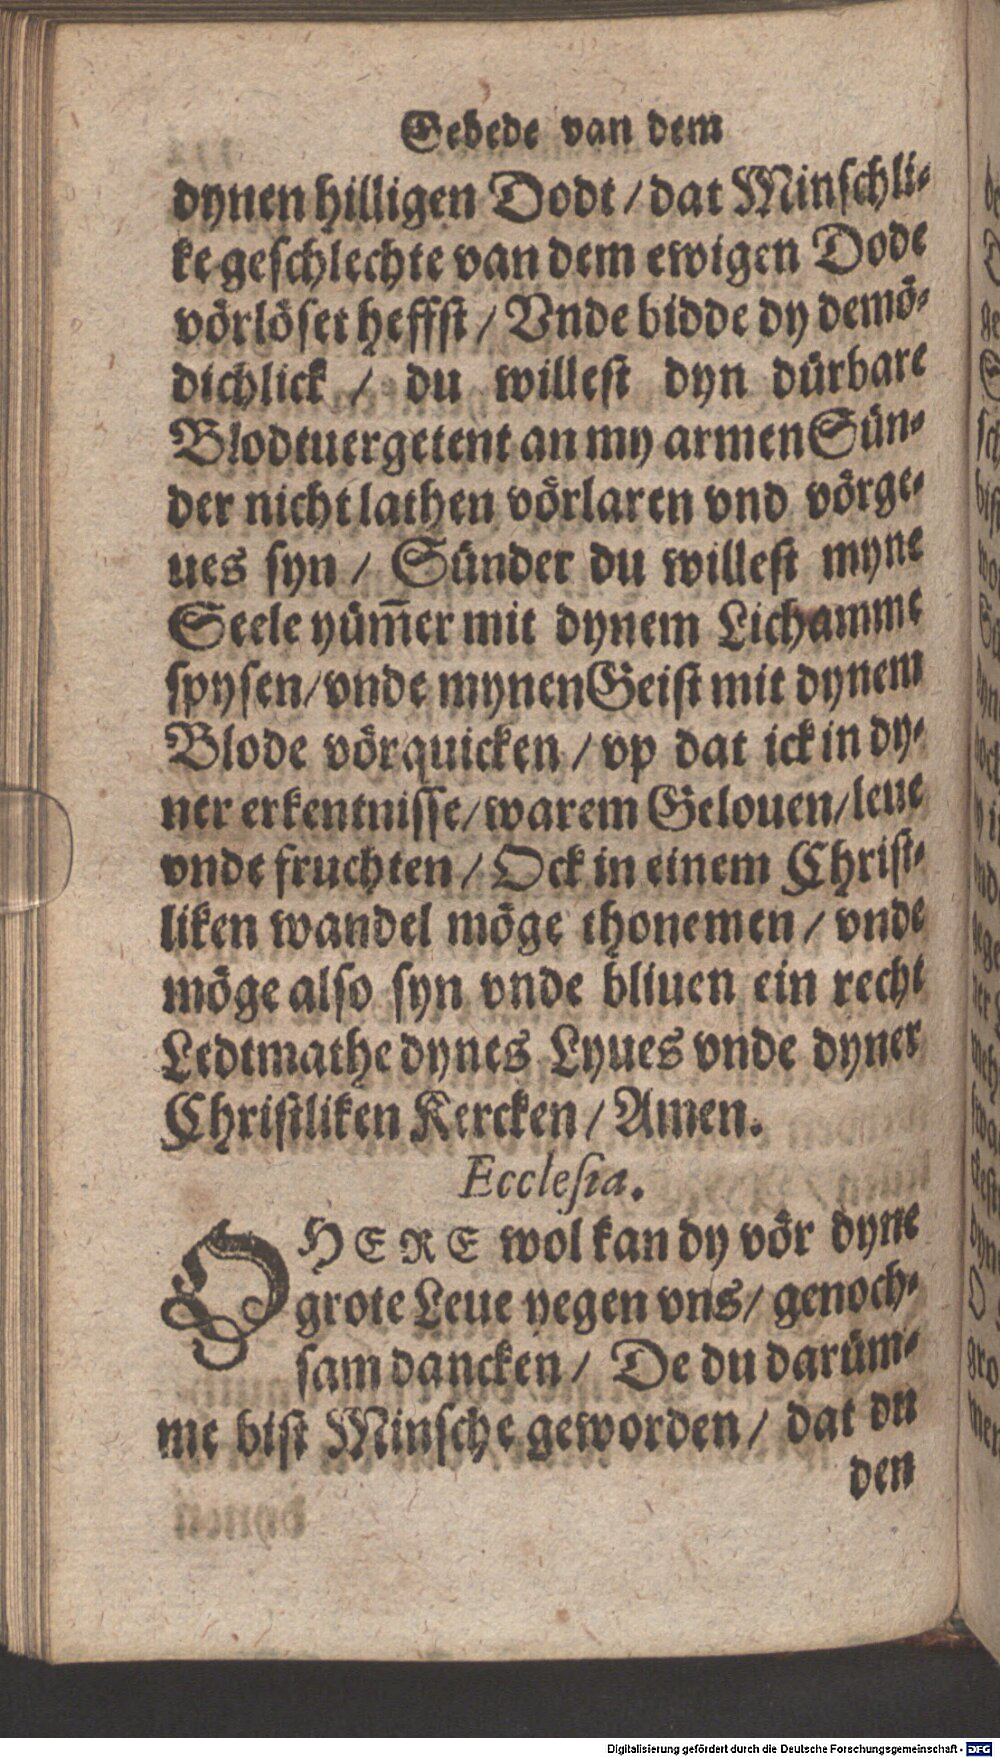 Gebede van dem
dynen hilligen Dodt / dat Minschli-
ke geschlechte van dem ewigen Dode
vörlöset heffst / Vnde bidde dy demö-
dichlick / du willest dyn dürbare
Blodtuergetent an my armen Sün-
der nicht lathen vörlaren vnd vörge-
ues syn / Sünder du willest myne
Seele yüm̃er mit dynem Lichamme
spysen / vnde mynen Geist mit dynem
Blode vörquicken / vp dat ick in dy-
ner erkentnisse / warem Gelouen / leue
vnde fruchten / Ock in einem Christ-
liken wandel möge thonemen / vnde
möge also syn vnde bliuen ein recht
Ledtmathe dynes Lyues vnde dyner
Christliken Kercken / Amen.
Ecclesia.
O HERE wol kan dy vör dyne
grote Leue yegen vns / genoch-
sam dancken / De du darüm-
me bist Minsche geworden / dat du
den
Digitalisierung gefördert durch die Deutsche Forschungsgemeinschaft - DFG